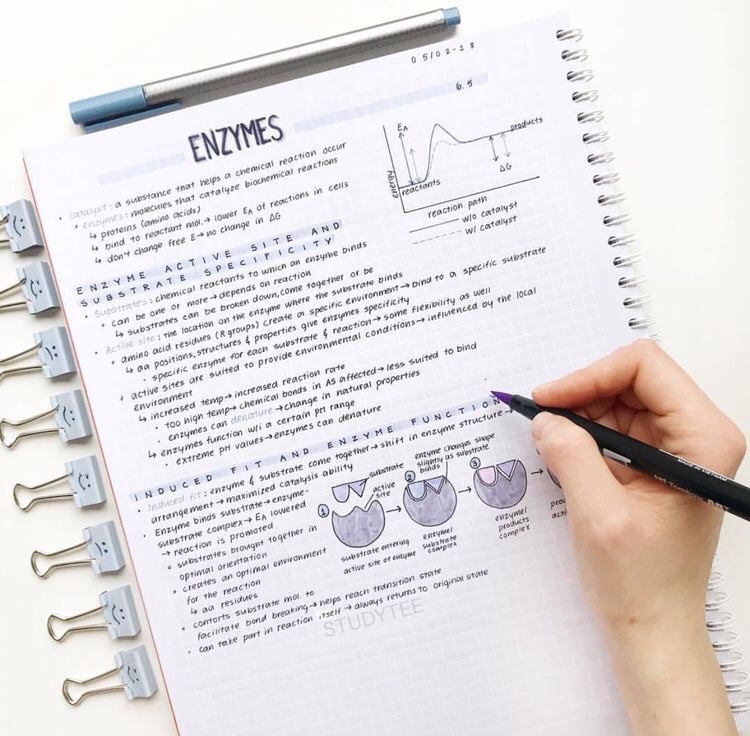 05/02-18
6.5
ENZYMES
• catalyst: a substance that helps a chemical reaction occur
• enzymes: molecules that catalyze biochemical reactions
↳ proteins (amino acids)
↳ bind to reactant mol.→ lower EA of reactions in cells
↳ don't change free E→ no change in ΔG
EA
products
energy
reactants
ΔG
reaction path
w/o catalyst
w/ catalyst
ENZYME ACTIVE SITE AND
SUBSTRATE SPECIFICITY
• Substrates: chemical reactants to which an enzyme binds
• can be one or more→depends on reaction
↳ substrates can be broken down, come together or be
• Active site: the location on the enzyme where the substrate binds
• amino acid residues (R groups) create a specific environment→bind to a specific substrate
↳ aa positions, structures & properties give enzymes specificity
• specific enzyme for each substrate & reaction→some flexibility as well
• active sites are suited to provide environmental conditions→ influenced by the local
environment
↳ increased temp→increased reaction rate
• too high temp→chemical bonds in AS affected→less suited to bind
• enzymes can denature→change in natural properties
↳ enzymes function w/i a certain pH range
• extreme pH values→enzymes can denature
INDUCED FIT AND ENZYME FUNCTION
• Induced fit: enzyme & substrate come together→shift in enzyme structure→
arrangement→maximized catalysis ability
• Enzyme binds substrate→enzyme-
substrate complex→ EA lowered
→ reaction is promoted
• substrates brought together in
optimal orientation
• creates an optimal environment
for the reaction
↳ aa residues
• contorts substrate mol. to
facilitate bond breaking→helps reach transition state
• can take part in reaction itself→always returns to original state
1
substrate
active
site
substrate entering
active site of enzyme
2
enzyme changes shape
slightly as substrate
binds
enzyme/
substrate
complex
3
enzyme/
products
complex
STUDYTEE